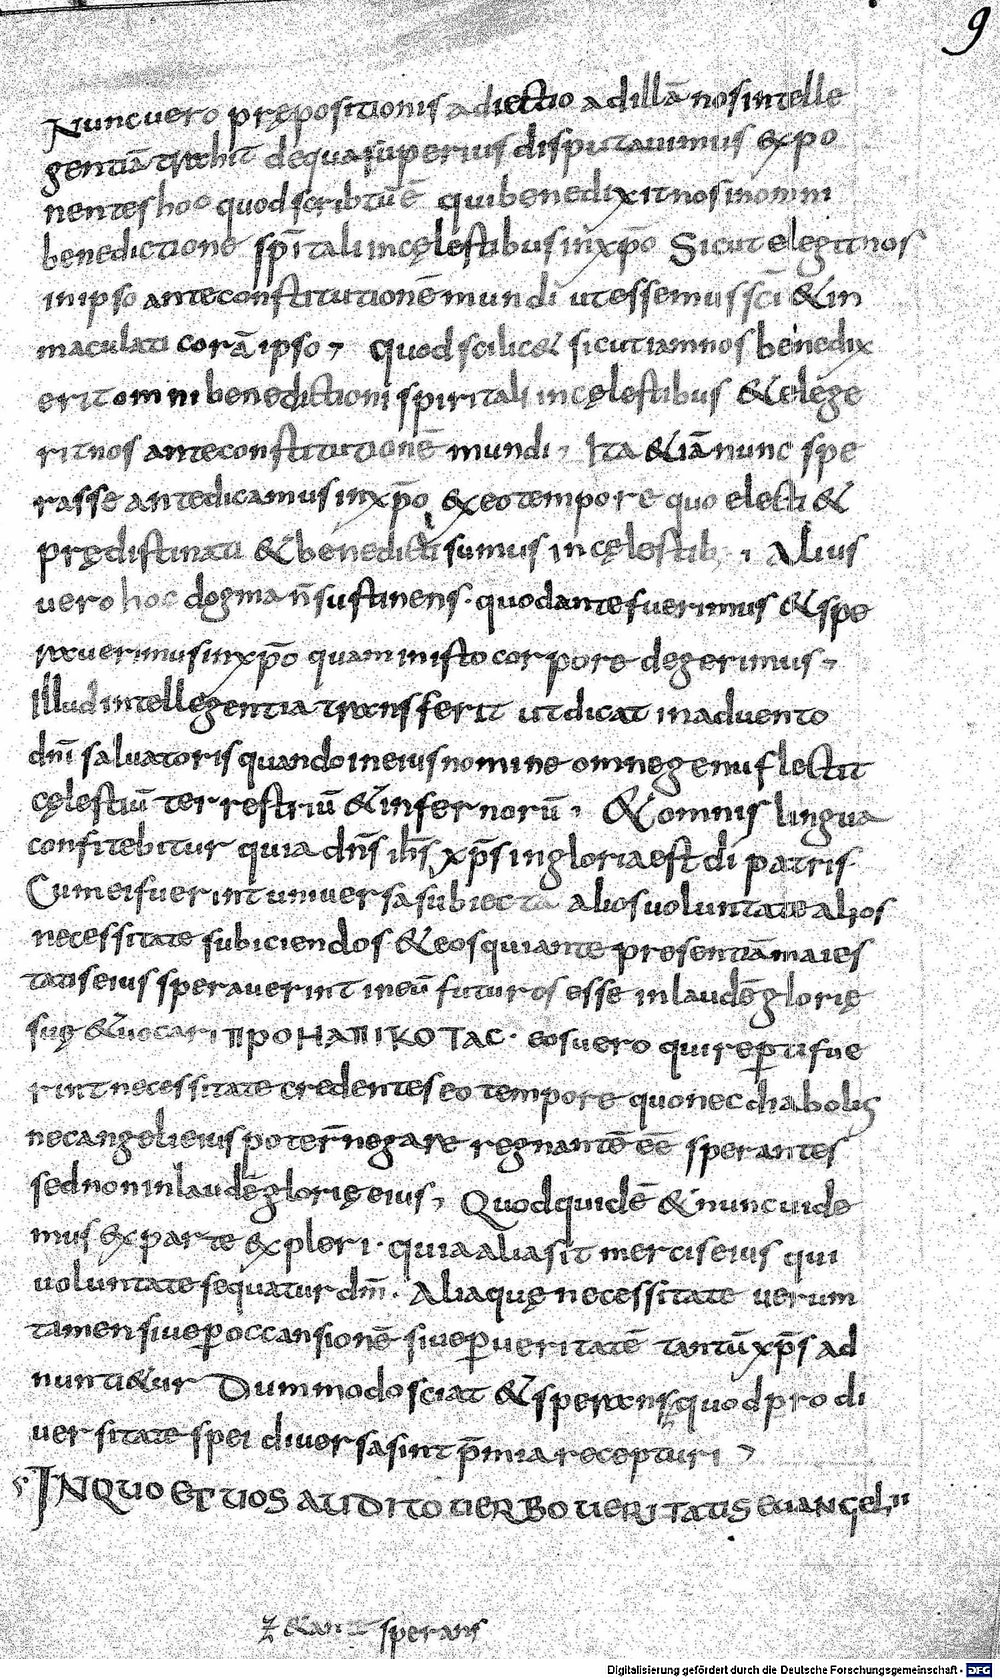 9
Nunc uero prępositionis adiectio ad illā nos intelle
gentiā trahit de qua superius disputauimus expo
nentes hoc quod scribtū ē qui benedixit nos in omni
benedictione spītali in cęlestibus in xp̄o Sicut elegit nos
in ipso ante constitutionē mundi ut essemus sc̄i & in
maculati corā ipso, quod scilic& sicut iam nos benedix
erit omni benedictioni spiritali in cęlestibus & elege
rit nos ante constitutionē mundi, Ita & iā nunc spe
rasse ante dicamus in xp̄o, ex eo tempore quo electi &
prędistinati & benedicti sumus in cęlestib; , Alius
uero hoc dogma n̄ sustinens · quod ante fuerimus & spe
rauerimus in xp̄o quam in isto corpore degerimus,
Illud intellegentia transferit ut dicat in aduento
dn̄i saluatoris quando in eius nomine omne genu flectit
cęlestiū terrestriū & infernorū, & omnis lingua
confitebitur quia dn̄s ih̄s xp̄s in gloria est dī patris·
Cum ei fuerint uniuersa subiecta alios uoluntate alios
necessitate subiciendos · & eos qui ante presentiā maies
tatis eius sperauerint in eū futuros esse in laudē glorię
suę & uocari ΠΡΟΗΛΠΙΚΟΤΑC · eos uero qui rep̄ti fue
rint necessitate credentes eo tempore quo nec diabolus
nec angeli eius poter̄ negare regnantē eē sperantes
sed non in laudē glorię eius, Quod quidē & nunc uide
mus ex parte expleri · quia alia sit mercis eius qui
uoluntate sequatur dn̄m · Aliaquę necessitate uerum
tamen siue p̄ occansionē siue p̄ ueritatē tantū xp̄s ad
nunti&ur Dummodo sciat & sperans quod pro di
uersitate spei diuersa sint p̄mia recepturi ,
IN QUO ET UOS AUDITO UERBO UERITATIS EUANGELII
&ant sperans
Digitalisierung gefördert durch die Deutsche Forschungsgemeinschaft - DFG